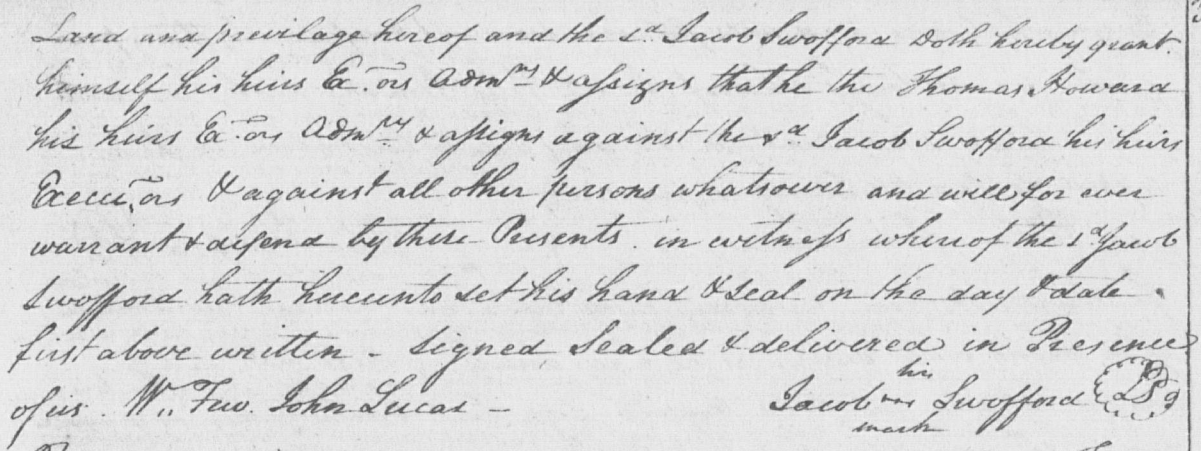 Land and previlage hereof and the sd Jacob Swofford Doth hereby grant.
himself his heirs Ex.ors Admrs & assigns that he the Thomas Howard
his heirs Ex.ors Admrs & assigns against the sd Jacob Swofford his heirs
Execu.ors & against all other persons whatsower and will for ever
warrant & defend by these Presents. in witness whereof the sd Jacob
Swofford hath hereunto set his hand & seal on the day & date.
first above written - Signed Sealed & delivered in Presence
of us. W.. Few. John Lucas - Jacob his mark Swofford LS